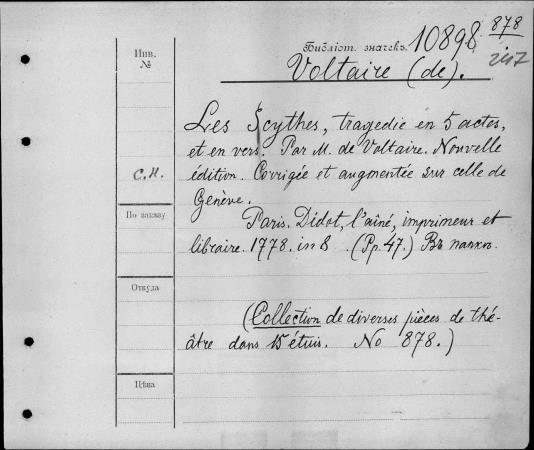 Инв.
№
Библіот. значекъ. 10898 878
247
Voltaire (de).
Les Scythes, tragedie en 5 actes,
et en vers. Par M. de Voltaire. Nouvelle
édition. Corrigée et augmentée sur celle de
С.Н.
Genève.
По заказу
Paris. Didot, l'aîné, imprimeur et
libraire. 1778. in 8. (Pp. 47.) Въ папкѣ.
Откуда
(Collection de diverses pièces de thé-
âtre dans 15 étuis. No 878.)
Цѣна